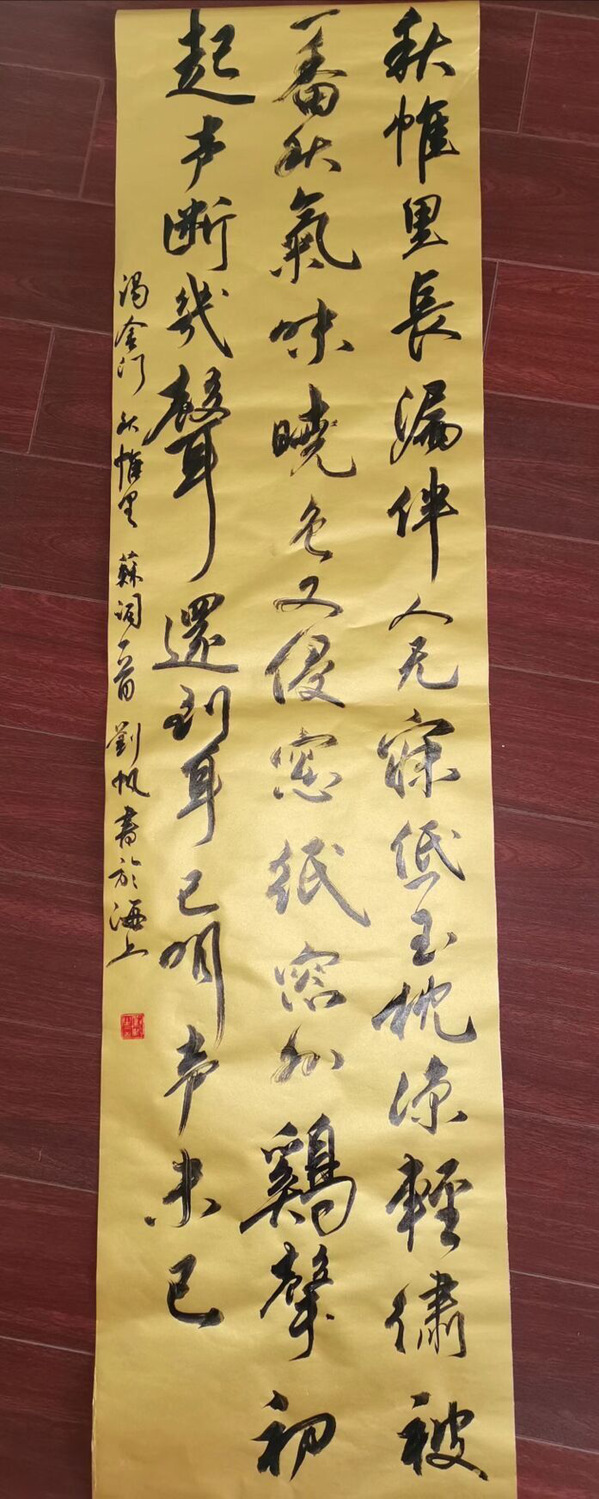 秋帷里長漏伴人无寐低玉枕凉輕繡被
一番秋氣味曉色又侵窓紙窓外鷄聲初
起声断幾聲還到耳已明声未已
谒金门 秋帷里 蘇词一首 劉帆書於海上